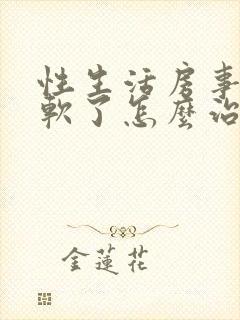 性生活房事
軟了怎麼治
金蓮花